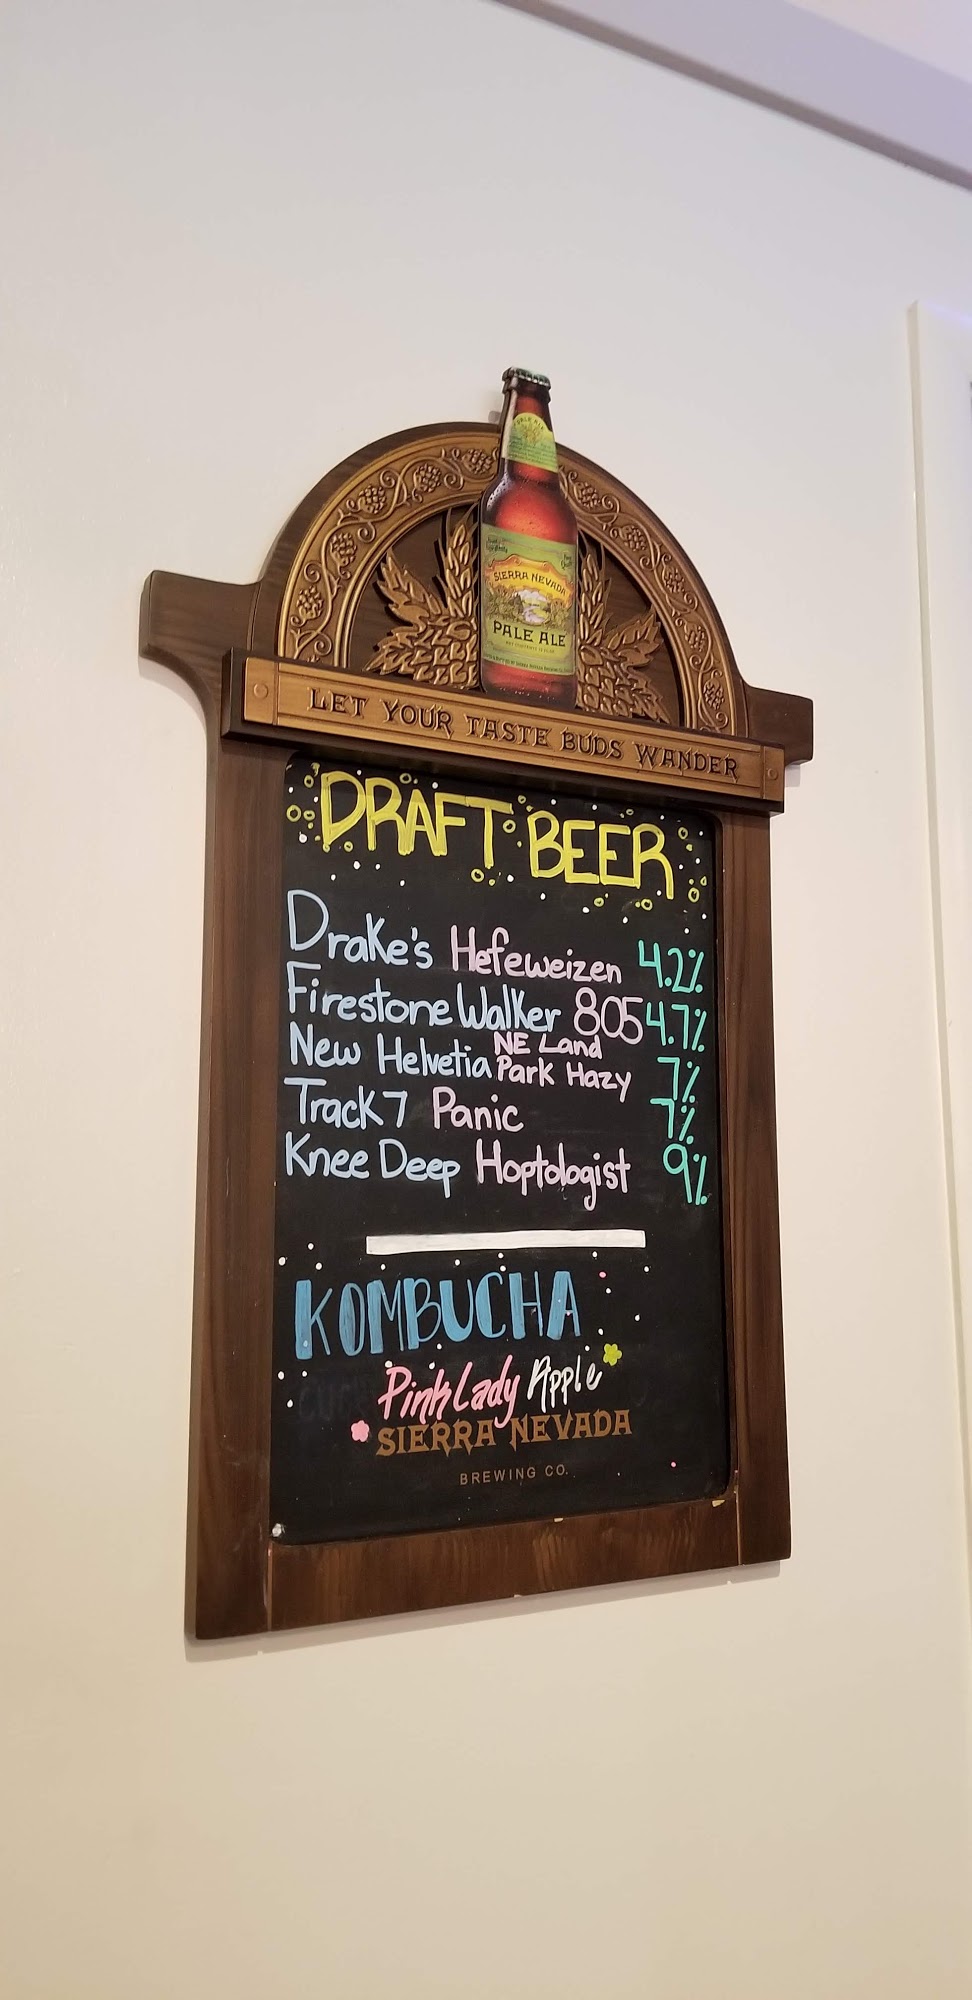 SIERRA NEVADA
PALE ALE
LET YOUR TASTE BUDS WANDER
DRAFT BEER
Drake's Hefeweizen 4.2%
Firestone Walker 805 4.7%
New Helvetia NE Land Park Hazy 7%
Track 7 Panic 7%
Knee Deep Hoptologist 9%
KOMBUCHA
Pink Lady Apple
SIERRA NEVADA
BREWING CO.